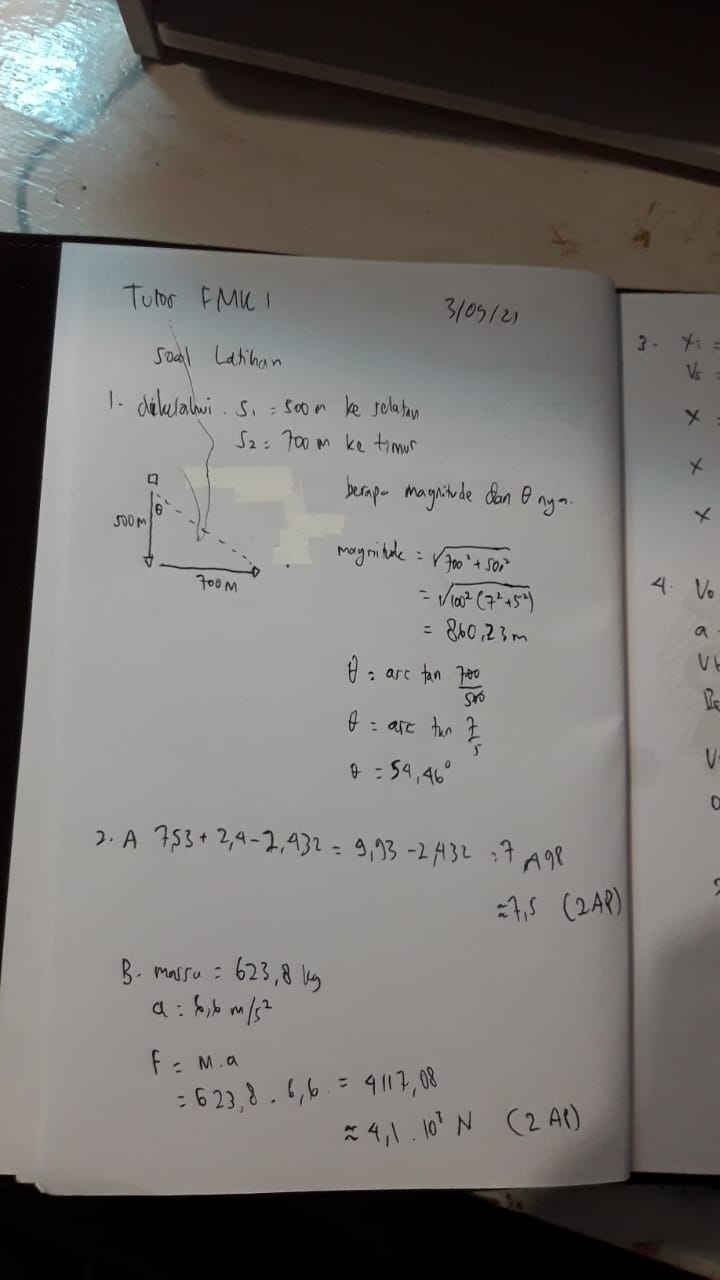 Tutor FMK 1
3/09/21
Soal Latihan
1. diketahui. S₁ = 500 m ke selatan
S₂ = 700 m ke timur
berapa magnitude dan θ nya.
500 M
θ
700 M
magnitude = √700² + 500²
= √100² (7² + 5²)
= 860,23 m
θ = arc tan 700/500
θ = arc tan 7/5
θ = 54,46°
2. A 7,53 + 2,4 - 2,432 = 9,93 - 2,432 = 7,498
≈ 7,5 (2 AP)
B. massa = 623,8 kg
a = 6,6 m/s²
F = M.a
= 623,8 . 6,6 = 4117,08
≈ 4,1 . 10³ N (2 AP)
3.
Vs
x
x
x
4. Vo
a
V